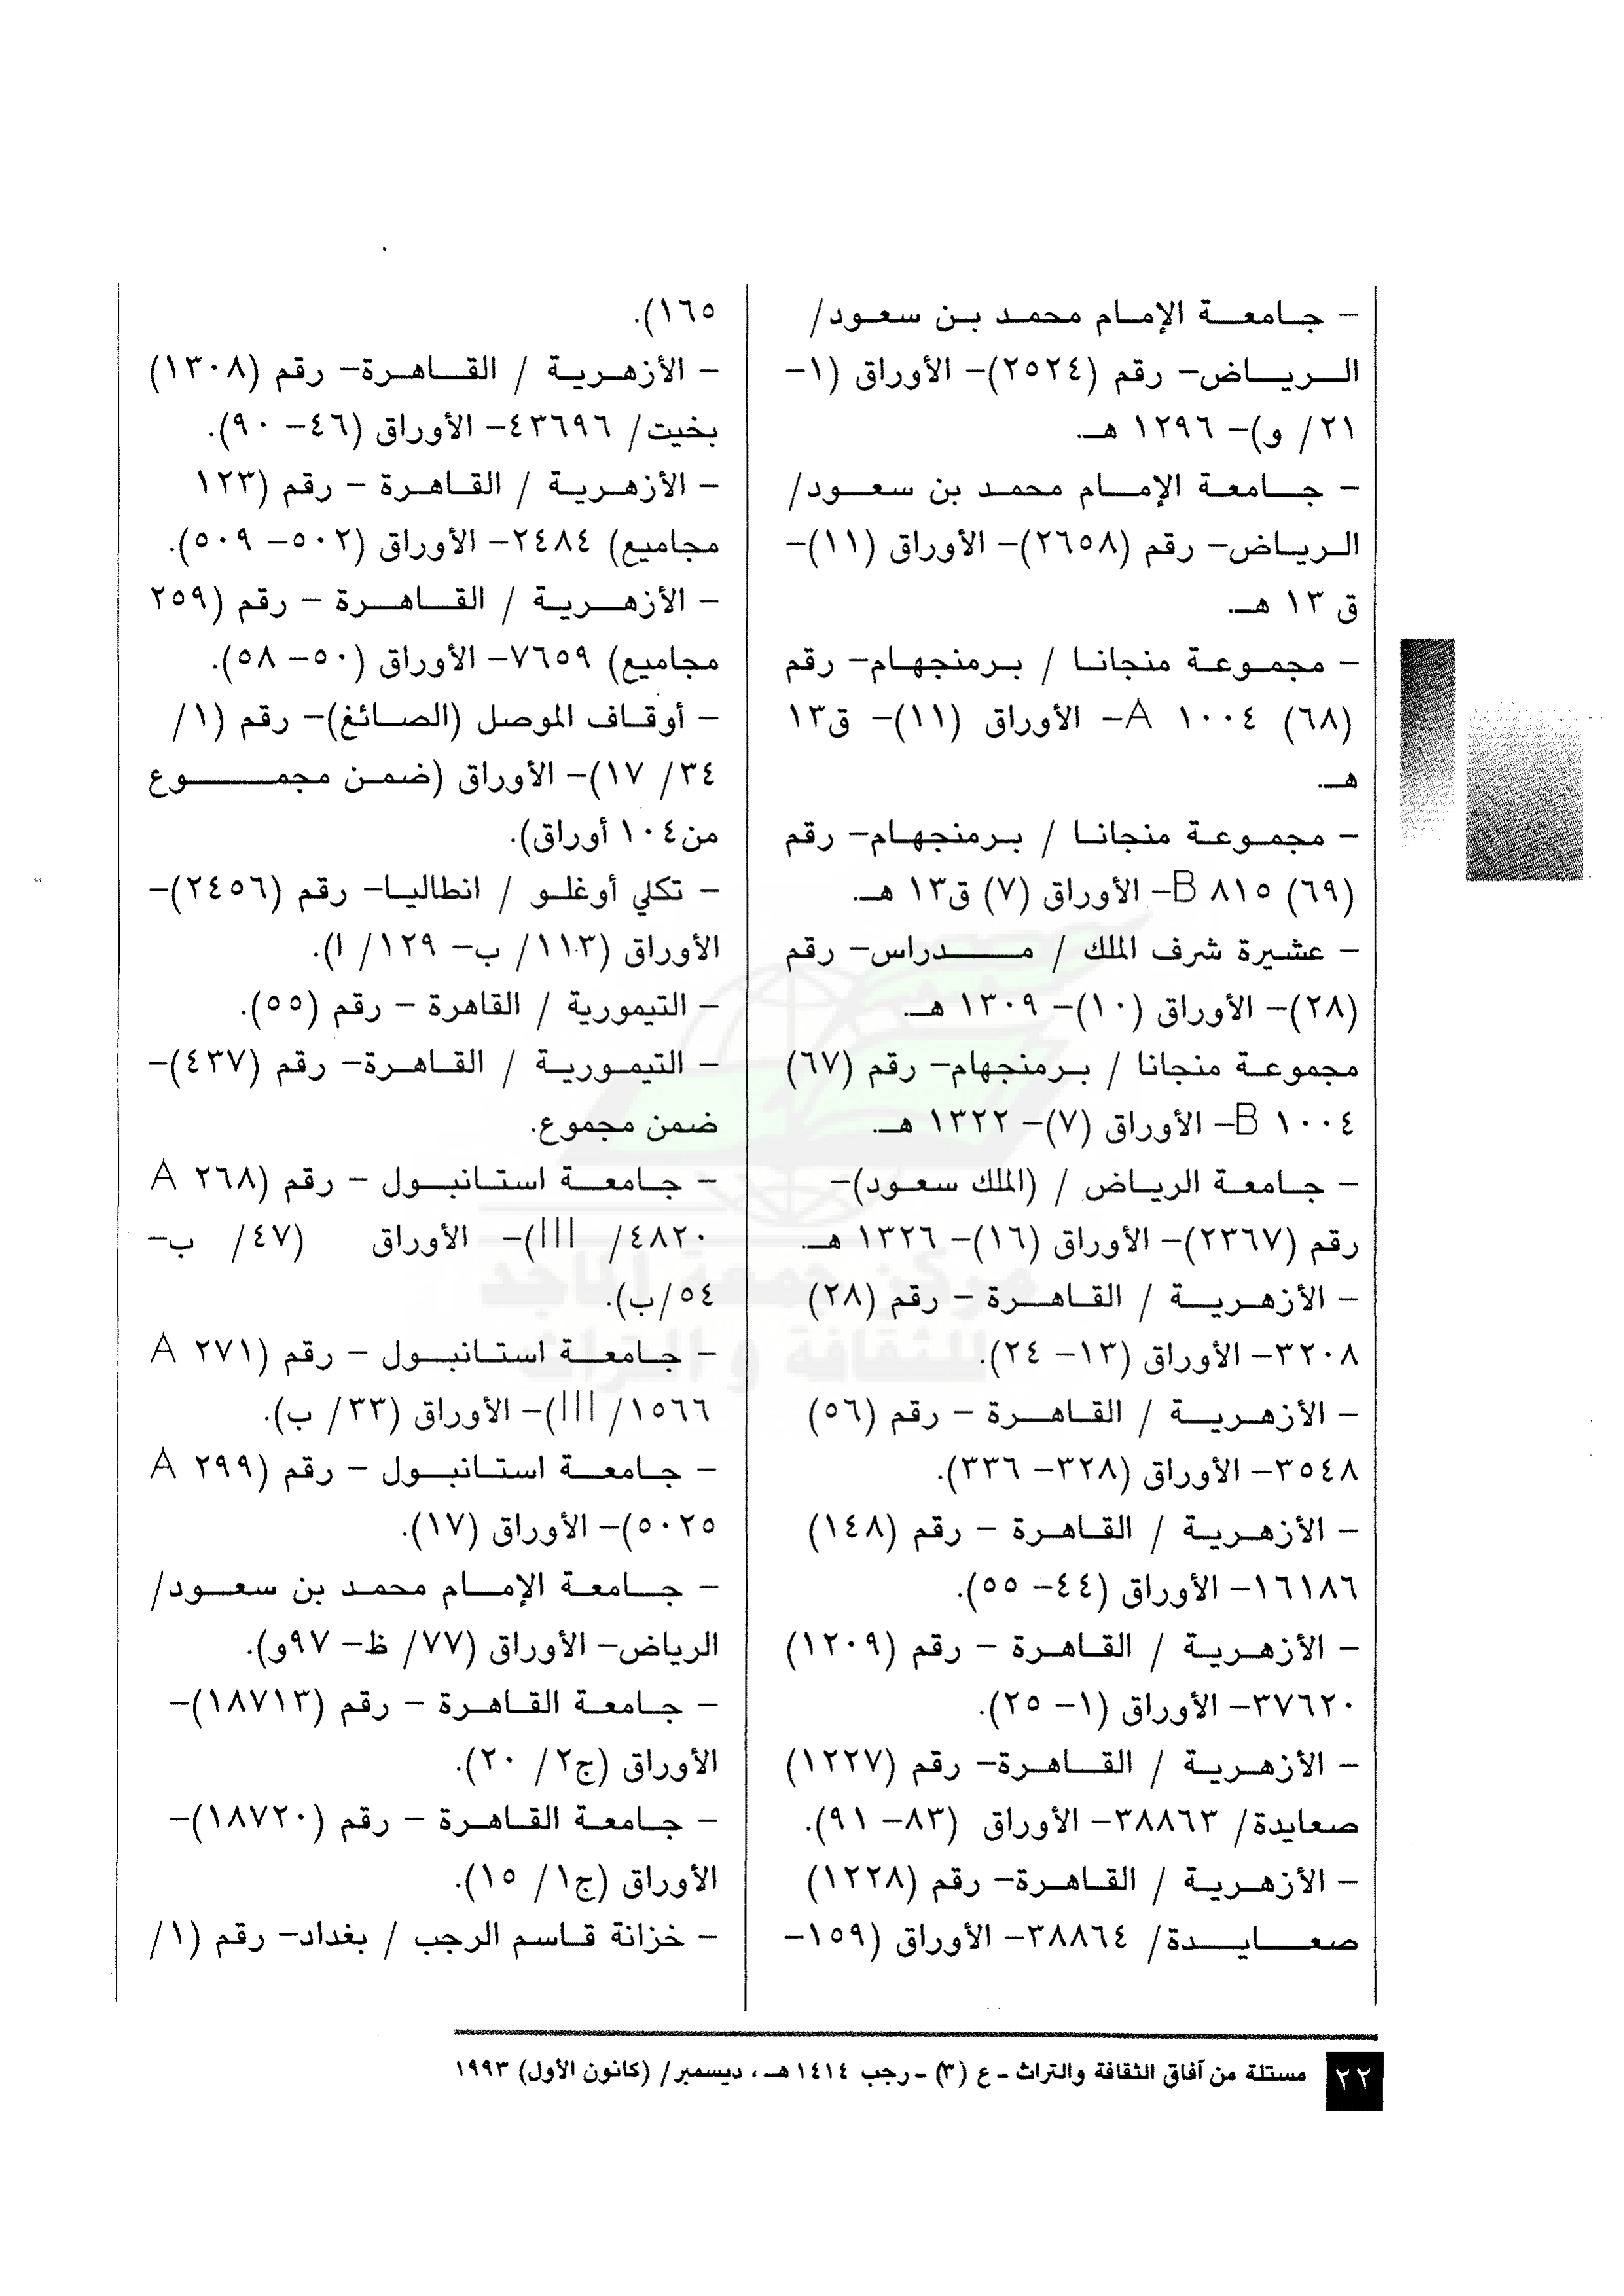 – جامعة الإمام محمد بن سعود/
الرياض– رقم (٢٥٢٤)– الأوراق (١–
٢١/ و)– ١٢٩٦ هـ.
– جامعة الإمام محمد بن سعود/
الرياض– رقم (٢٦٥٨)– الأوراق (١١)–
ق ١٣ هـ.
– مجموعة منجانا / برمنجهام– رقم
(٦٨) ١٠٠٤ A– الأوراق (١١)– ق١٣
هـ.
– مجموعة منجانا / برمنجهام– رقم
(٦٩) ٨١٥ B– الأوراق (٧) ق١٣ هـ.
– عشيرة شرف الملك / مدراس– رقم
(٢٨)– الأوراق (١٠)– ١٣٠٩ هـ.
مجموعة منجانا / برمنجهام– رقم (٦٧)
١٠٠٤ B– الأوراق (٧)– ١٣٢٢ هـ.
– جامعة الرياض / (الملك سعود)–
رقم (٢٣٦٧)– الأوراق (١٦)– ١٣٢٦ هـ.
– الأزهرية / القاهرة – رقم (٢٨)
٣٢٠٨– الأوراق (١٣– ٢٤).
– الأزهرية / القاهرة – رقم (٥٦)
٣٥٤٨– الأوراق (٣٢٨– ٣٣٦).
– الأزهرية / القاهرة – رقم (١٤٨)
١٦١٨٦– الأوراق (٤٤– ٥٥).
– الأزهرية / القاهرة – رقم (١٢٠٩)
٣٧٦٢٠– الأوراق (١– ٢٥).
– الأزهرية / القاهرة– رقم (١٢٢٧)
صعايدة/ ٣٨٨٦٣– الأوراق (٨٣– ٩١).
– الأزهرية / القاهرة– رقم (١٢٢٨)
صعايدة/ ٣٨٨٦٤– الأوراق (١٥٩–
١٦٥).
– الأزهرية / القاهرة– رقم (١٣٠٨)
بخيت/ ٤٣٦٩٦– الأوراق (٤٦– ٩٠).
– الأزهرية / القاهرة – رقم (١٢٣
مجاميع) ٢٤٨٤– الأوراق (٥٠٢– ٥٠٩).
– الأزهرية / القاهرة – رقم (٢٥٩
مجاميع) ٧٦٥٩– الأوراق (٥٠– ٥٨).
– أوقاف الموصل (الصائغ)– رقم (١/
٣٤/ ١٧)– الأوراق (ضمن مجموع
من١٠٤ أوراق).
– تكلي أوغلو / انطاليا– رقم (٢٤٥٦)–
الأوراق (١١٣/ ب– ١٢٩/ ا).
– التيمورية / القاهرة – رقم (٥٥).
– التيمورية / القاهرة– رقم (٤٣٧)–
ضمن مجموع.
– جامعة استانبول – رقم (٢٦٨ A
٤٨٢٠/ III)– الأوراق (٤٧/ ب–
٥٤/ب).
– جامعة استانبول – رقم (٢٧١ A
١٥٦٦/ III)– الأوراق (٣٣/ ب).
– جامعة استانبول – رقم (٢٩٩ A
٥٠٢٥)– الأوراق (١٧).
– جامعة الإمام محمد بن سعود/
الرياض– الأوراق (٧٧/ ظ– ٩٧و).
– جامعة القاهرة – رقم (١٨٧١٣)–
الأوراق (ج٢/ ٢٠).
– جامعة القاهرة – رقم (١٨٧٢٠)–
الأوراق (ج١/ ١٥).
– خزانة قاسم الرجب / بغداد– رقم (١/
مركز جمعة الماجد
للثقافة و التراث
٢٢ مستلة من آفاق الثقافة والتراث ـ ع (٣) ـ رجب ١٤١٤ هـ ، ديسمبر/ (كانون الأول) ١٩٩٣